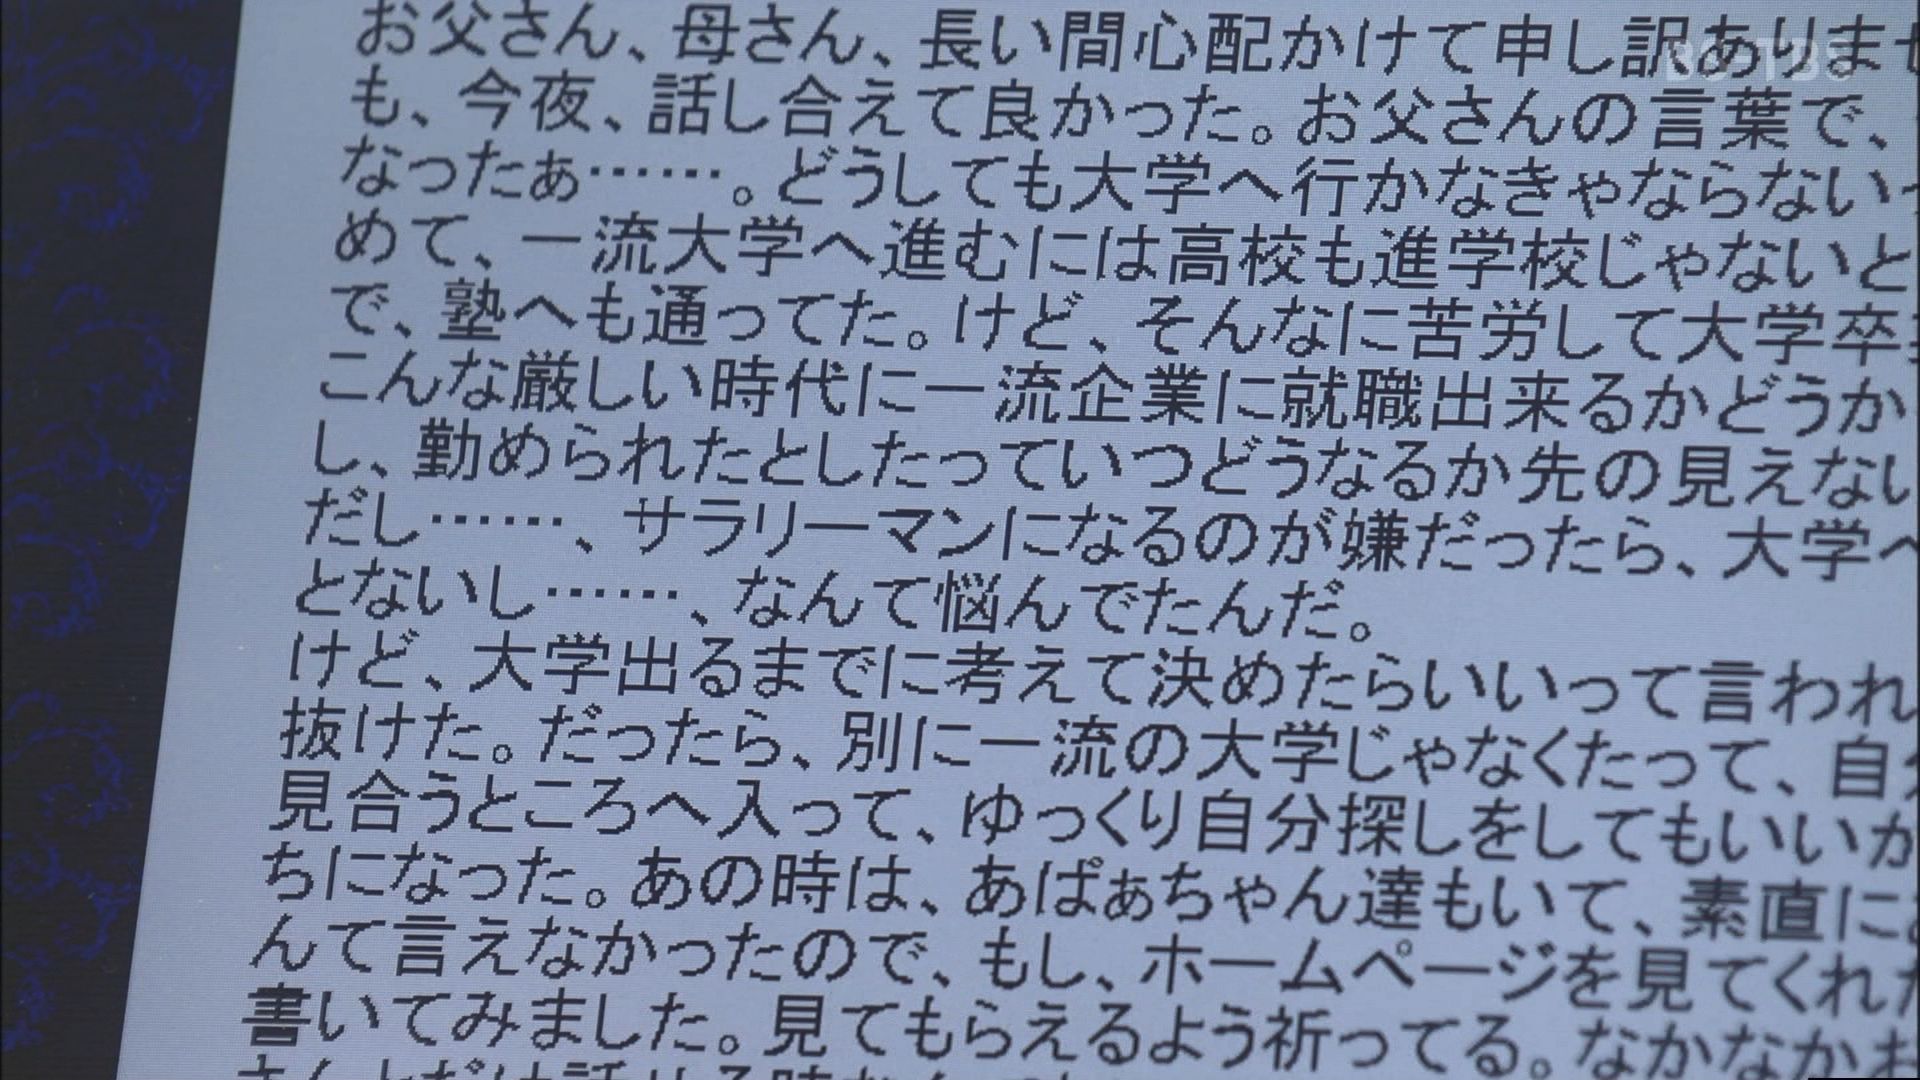 お父さん、母さん、長い間心配かけて申し訳ありませ
も、今夜、話し合えて良かった。お父さんの言葉で、
なったぁ……。どうしても大学へ行かなきゃならないっ
めて、一流大学へ進むには高校も進学校じゃないと
で、塾へも通ってた。けど、そんなに苦労して大学卒業
こんな厳しい時代に一流企業に就職出来るかどうか
し、勤められたとしたっていつどうなるか先の見えない
だし……、サラリーマンになるのが嫌だったら、大学へ
とないし……、なんて悩んでたんだ。
けど、大学出るまでに考えて決めたらいいって言われ
抜けた。だったら、別に一流の大学じゃなくたって、自分
見合うところへ入って、ゆっくり自分探しをしてもいいか
ちになった。あの時は、あばぁちゃん達もいて、素直に
んて言えなかったので、もし、ホームページを見てくれた
書いてみました。見てもらえるよう祈ってる。なかなかお
BS-TBS